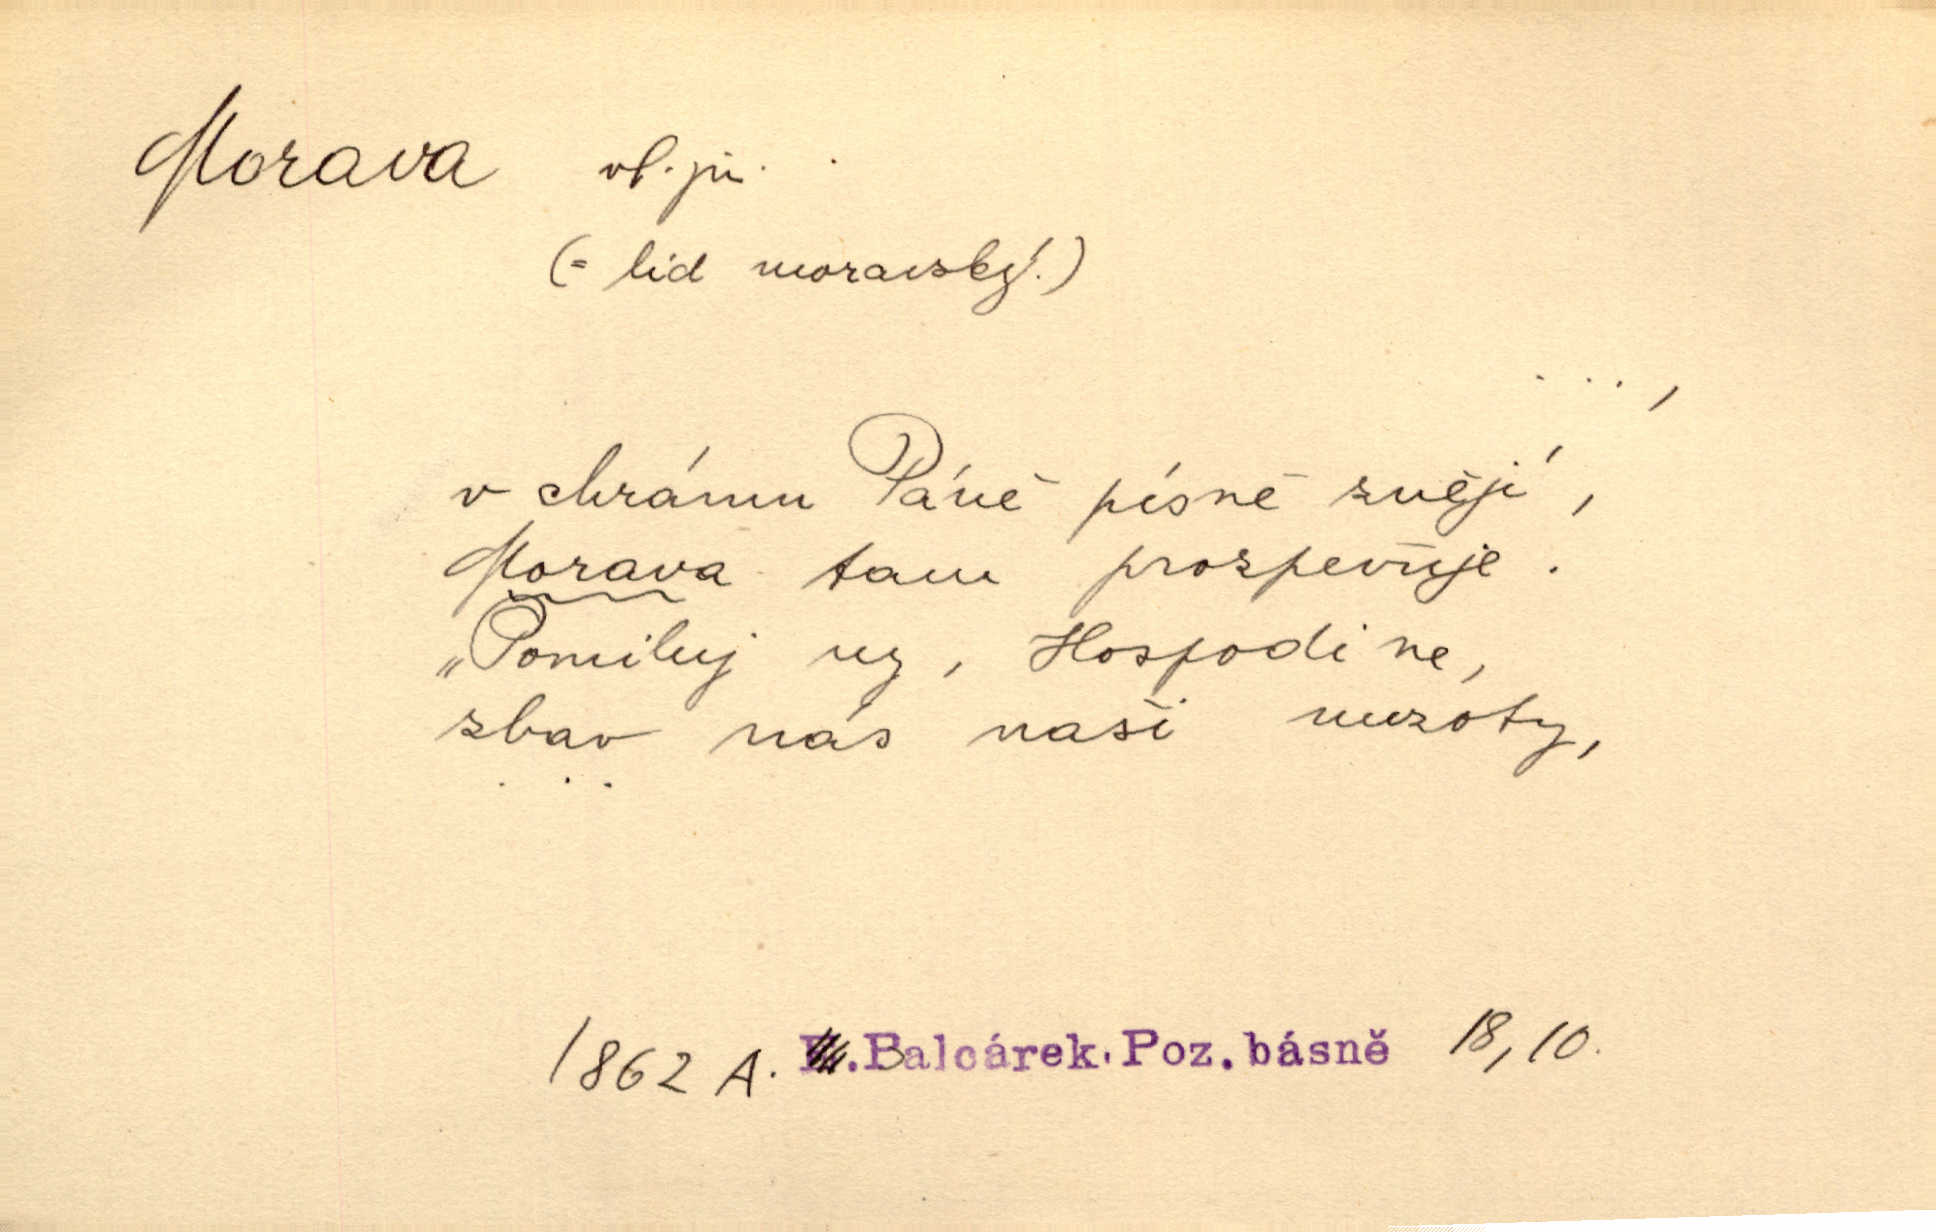 Morava vl. jm.
(= lid moravský.)
...,
v chrámu Páně písně znějí,
Morava tam prozpěvuje.
„Pomiluj ny, Hospodine,
zbav nás naší nuzoty,
...
1862 A. .Balcárek.Poz.básně 18,10.